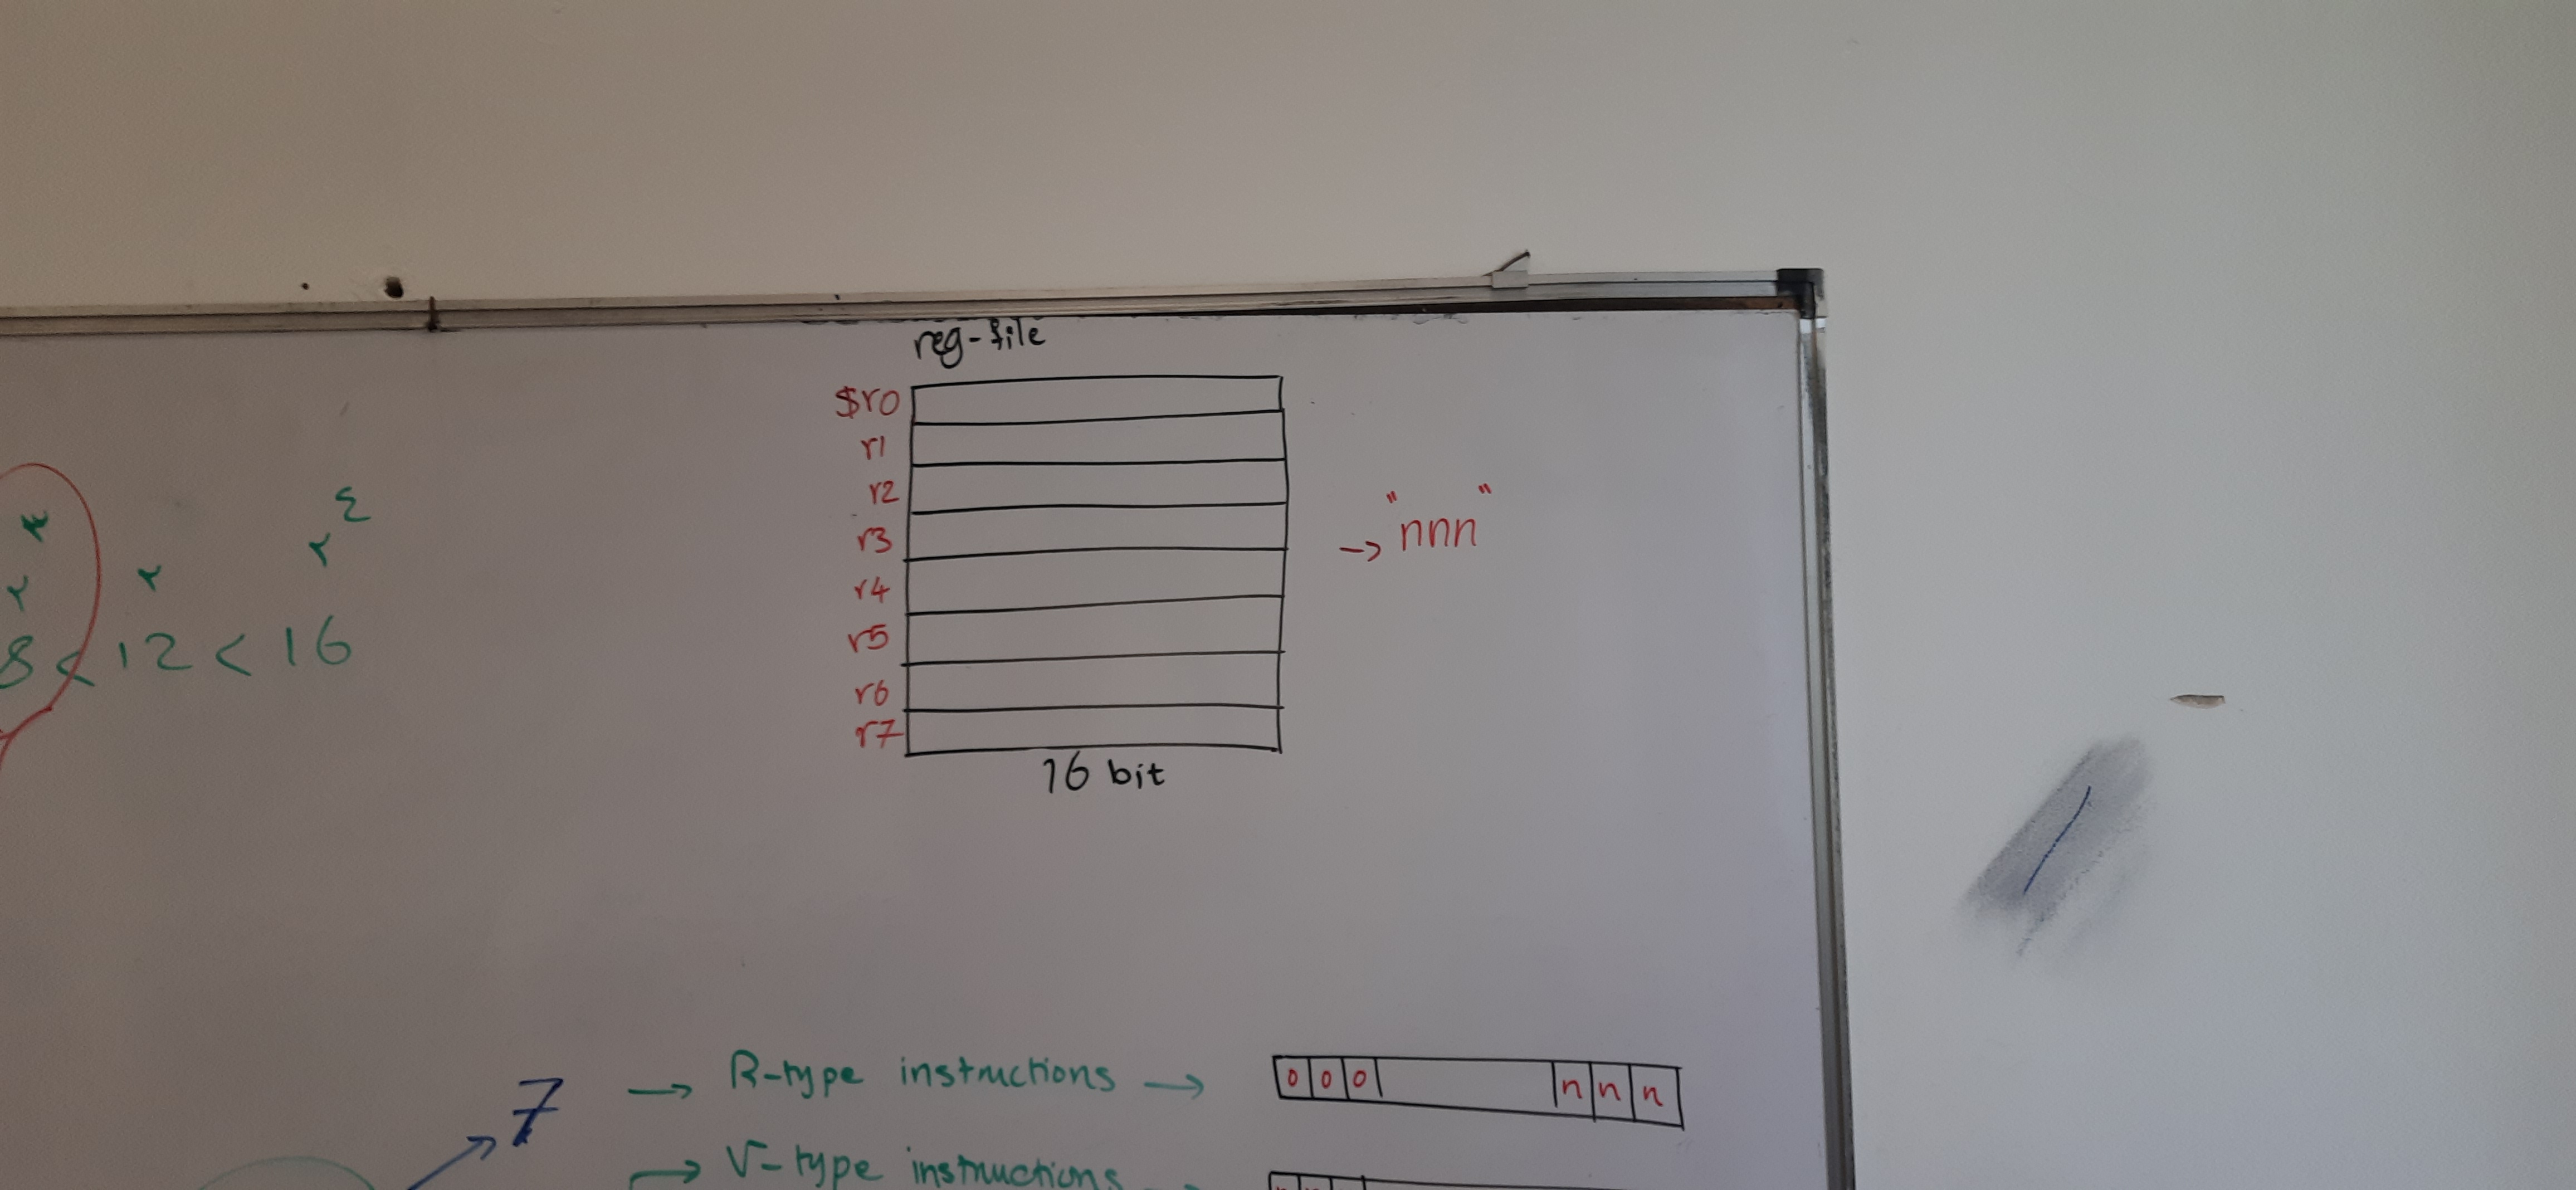 reg-file
$r0
r1
r2
r3
r4
r5
r6
r7
16 bit
→ "nnn"
8 < 12 < 16
7 → R-type instructions → 0 0 0 n n n
→ V-type instructions →